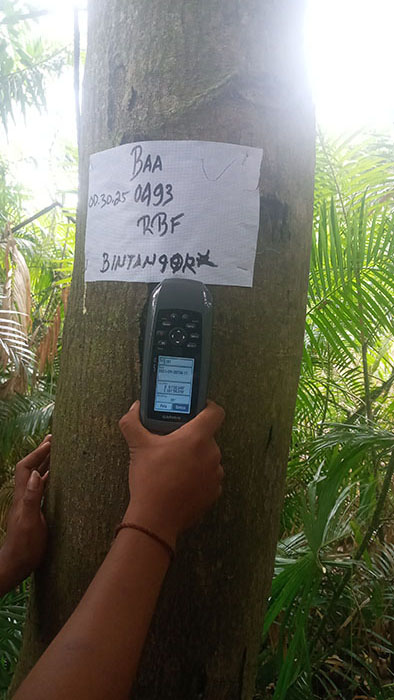 BAA
00.30.25 0493
RBF
BINTANGOR
GARMIN